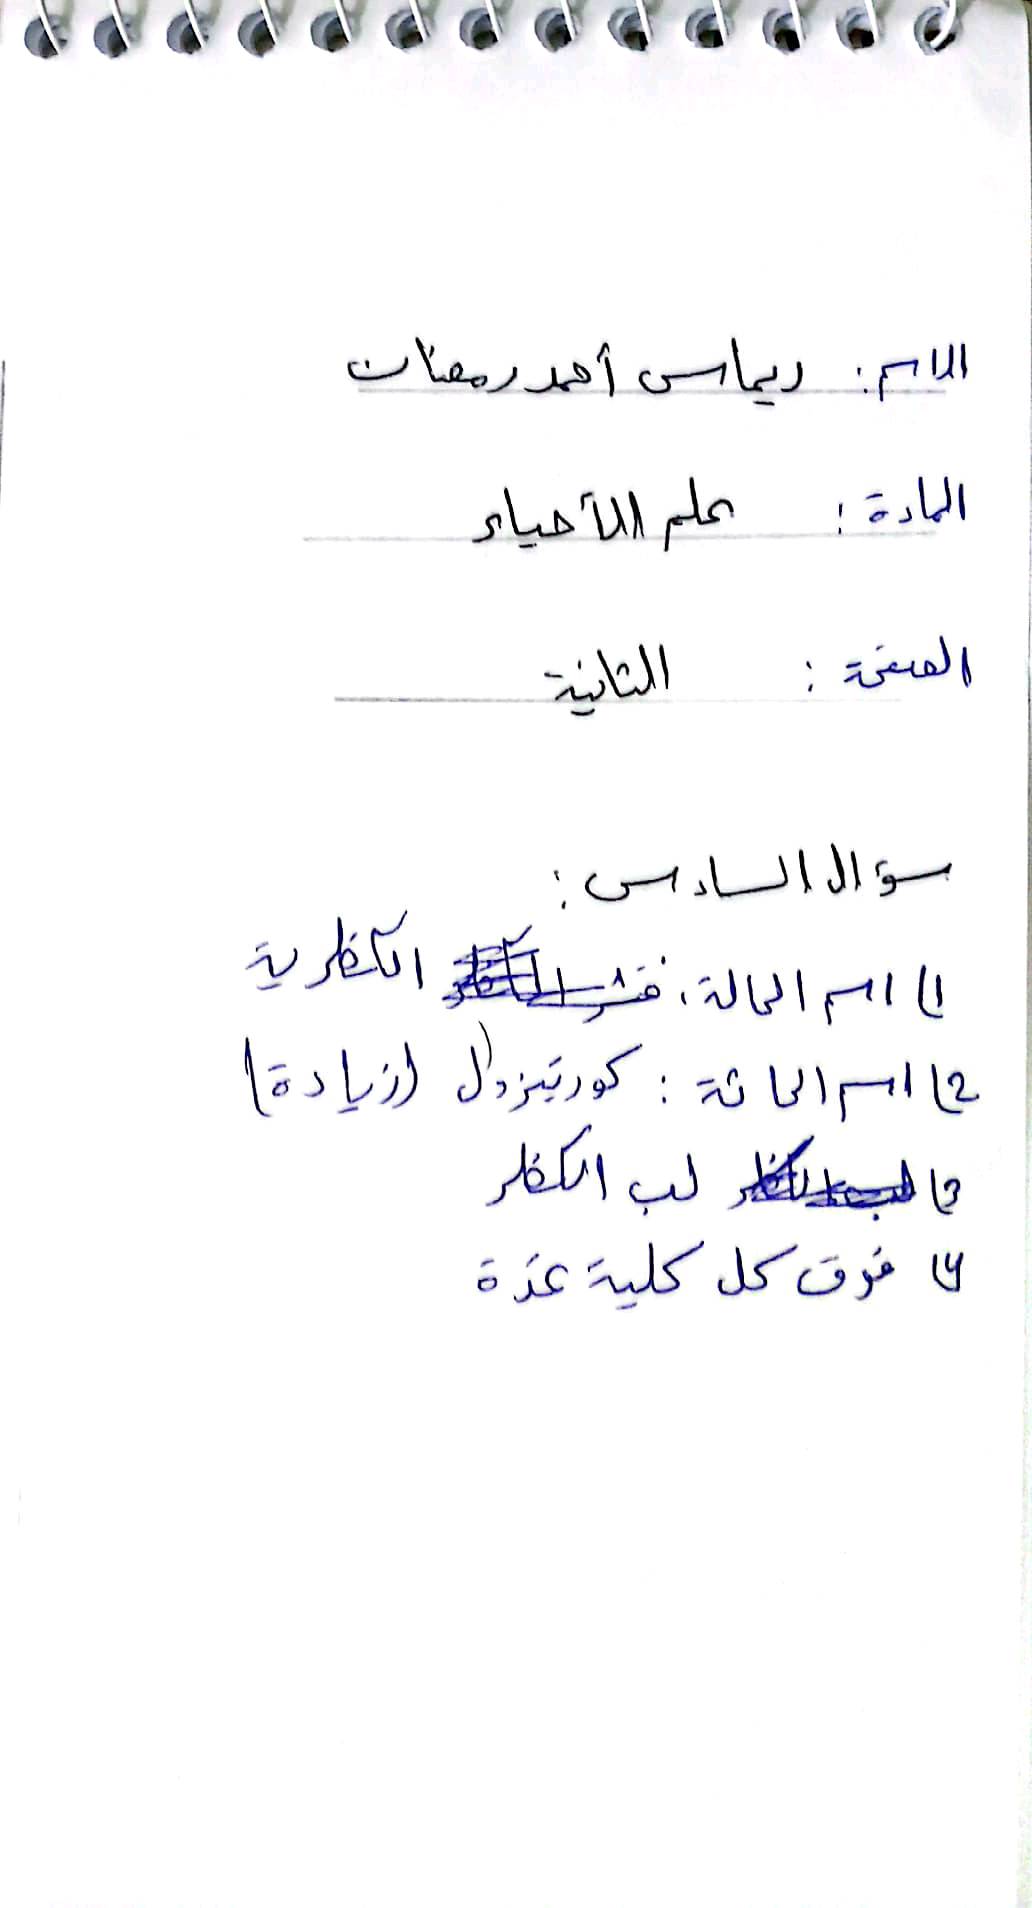 الاسم: ديماس أحمد رمضان
المادة: علم الأحياء
الصفحة: الثانية
سؤال السادس:
1) اسم الحالة: الكظرية
2) اسم الحاثة: كورتيزول (زيادة)
3) لب الكظر
4) فوق كل كلية غدة